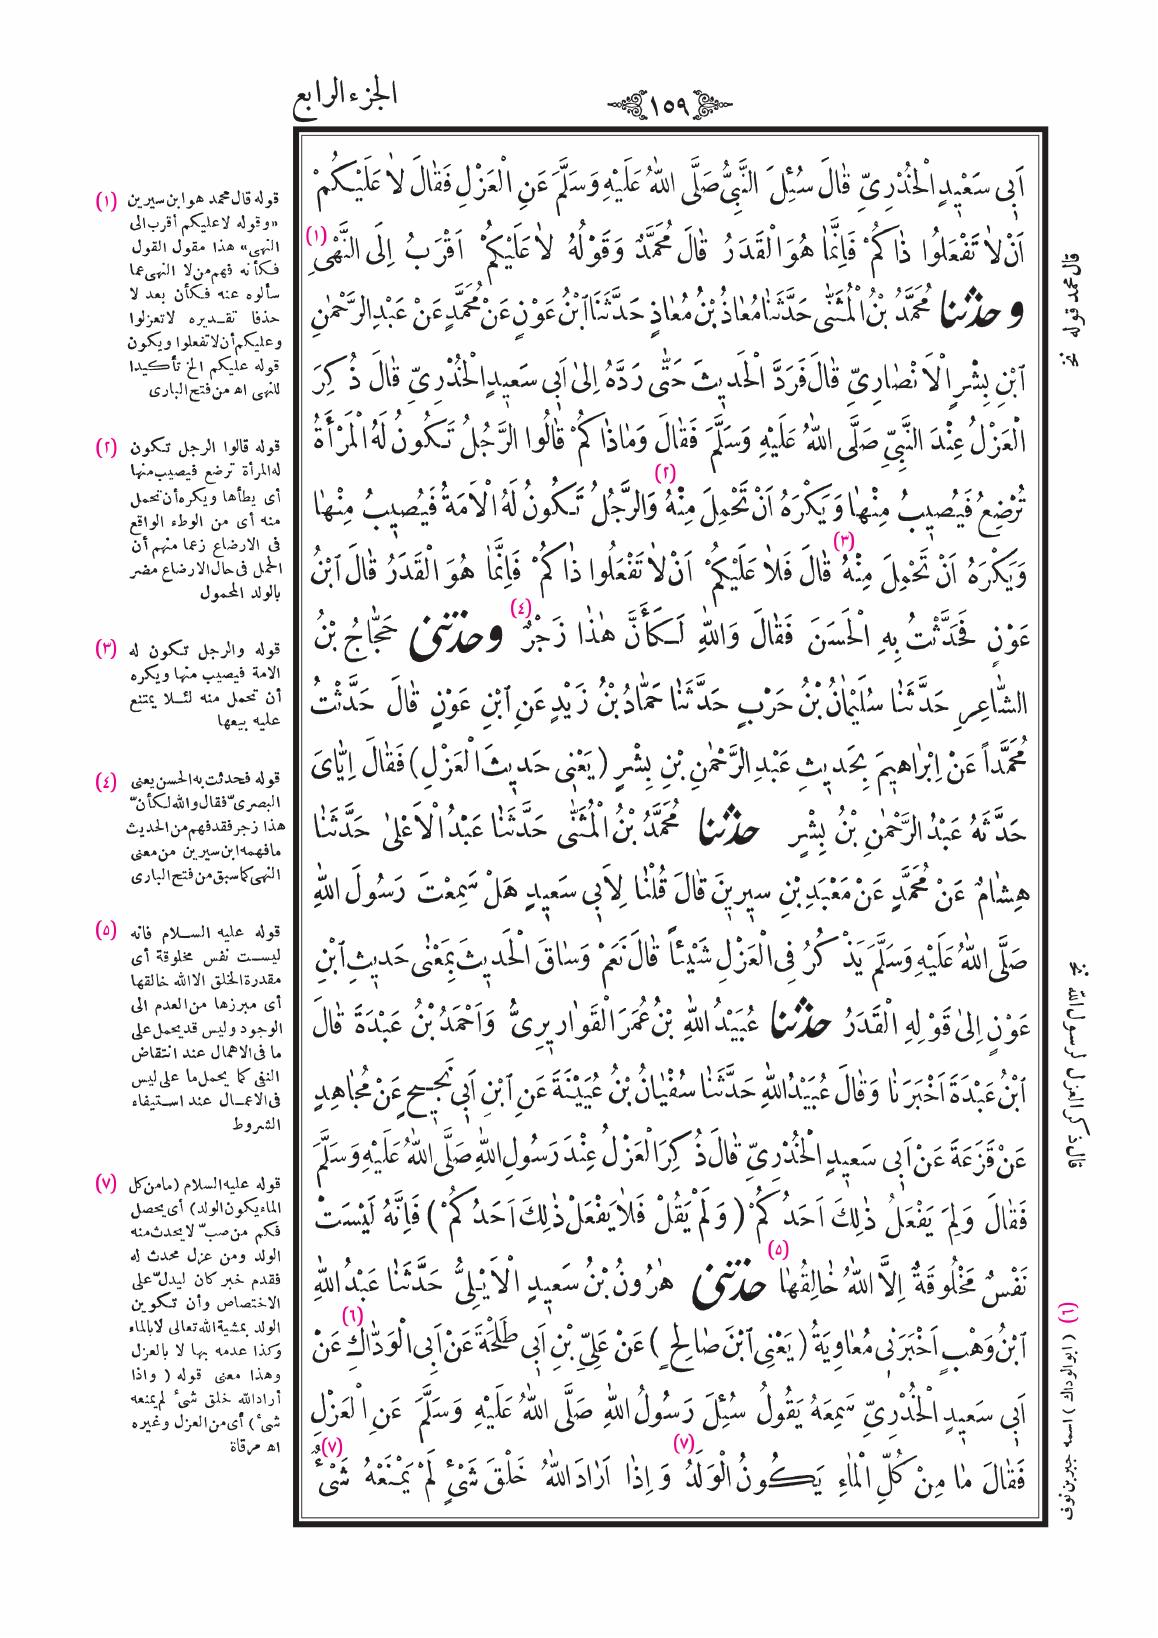 الجزء الرابع
١٥٩
اَبِى سَعِيدٍ الْخُدْرِىِّ قَالَ سُئِلَ النَّبِىُّ صَلَّى اللهُ عَلَيْهِ وَسَلَّمَ عَنِ الْعَزْلِ فَقَالَ لَا عَلَيْكُمْ
اَنْ لَا تَفْعَلُوا ذَاكُمْ فَاِنَّمَا هُوَ الْقَدَرُ قَالَ مُحَمَّدٌ وَقَوْلُهُ لَا عَلَيْكُمْ اَقْرَبُ اِلَى النَّهْىِ (١)
و حدثنا مُحَمَّدُ بْنُ الْمُثَنَّى حَدَّثَنَا مُعَاذُ بْنُ مُعَاذٍ حَدَّثَنَا ابْنُ عَوْنٍ عَنْ مُحَمَّدٍ عَنْ عَبْدِ الرَّحْمٰنِ
ابْنِ بِشْرٍ الْاَنْصَارِىِّ قَالَ فَرَدَّ الْحَدِيثَ حَتَّى رَدَّهُ اِلَى اَبِى سَعِيدٍ الْخُدْرِىِّ قَالَ ذُكِرَ
الْعَزْلُ عِنْدَ النَّبِىِّ صَلَّى اللهُ عَلَيْهِ وَسَلَّمَ فَقَالَ وَمَاذَاكُمْ قَالُوا الرَّجُلُ تَكُونُ لَهُ الْمَرْأَةُ
تُرْضِعُ فَيُصِيبُ مِنْهَا وَيَكْرَهُ اَنْ تَحْمِلَ مِنْهُ (٢) وَالرَّجُلُ تَكُونُ لَهُ الْاَمَةُ فَيُصِيبُ مِنْهَا
وَيَكْرَهُ اَنْ تَحْمِلَ مِنْهُ (٣) قَالَ فَلَا عَلَيْكُمْ اَنْ لَا تَفْعَلُوا ذَاكُمْ فَاِنَّمَا هُوَ الْقَدَرُ قَالَ ابْنُ
عَوْنٍ فَحَدَّثْتُ بِهِ الْحَسَنَ فَقَالَ وَاللهِ لَكَأَنَّ هٰذَا زَجْرٌ (٤) و حدثنى حَجَّاجُ بْنُ
الشَّاعِرِ حَدَّثَنَا سُلَيْمَانُ بْنُ حَرْبٍ حَدَّثَنَا حَمَّادُ بْنُ زَيْدٍ عَنِ ابْنِ عَوْنٍ قَالَ حَدَّثْتُ
مُحَمَّداً عَنْ اِبْرَاهِيمَ بِحَدِيثِ عَبْدِ الرَّحْمٰنِ بْنِ بِشْرٍ (يَعْنِى حَدِيثَ الْعَزْلِ) فَقَالَ اِيَّاىَ
حَدَّثَهُ عَبْدُ الرَّحْمٰنِ بْنُ بِشْرٍ حدثنا مُحَمَّدُ بْنُ الْمُثَنَّى حَدَّثَنَا عَبْدُ الْاَعْلٰى حَدَّثَنَا
هِشَامٌ عَنْ مُحَمَّدٍ عَنْ مَعْبَدِ بْنِ سِيرِينَ قَالَ قُلْنَا لِاَبِى سَعِيدٍ هَلْ سَمِعْتَ رَسُولَ اللهِ
صَلَّى اللهُ عَلَيْهِ وَسَلَّمَ يَذْكُرُ فِى الْعَزْلِ شَيْئاً قَالَ نَعَمْ وَسَاقَ الْحَدِيثَ بِمَعْنٰى حَدِيثِ ابْنِ
عَوْنٍ اِلٰى قَوْلِهِ الْقَدَرُ حدثنا عُبَيْدُ اللهِ بْنُ عُمَرَ الْقَوَارِيرِىُّ وَاَحْمَدُ بْنُ عَبْدَةَ قَالَ
ابْنُ عَبْدَةَ اَخْبَرَنَا وَقَالَ عُبَيْدُ اللهِ حَدَّثَنَا سُفْيَانُ بْنُ عُيَيْنَةَ عَنِ ابْنِ اَبِى نَجِيحٍ عَنْ مُجَاهِدٍ
عَنْ قَزَعَةَ عَنْ اَبِى سَعِيدٍ الْخُدْرِىِّ قَالَ ذُكِرَ الْعَزْلُ عِنْدَ رَسُولِ اللهِ صَلَّى اللهُ عَلَيْهِ وَسَلَّمَ
فَقَالَ وَلِمَ يَفْعَلُ ذٰلِكَ اَحَدُكُمْ (وَلَمْ يَقُلْ فَلَا يَفْعَلْ ذٰلِكَ اَحَدُكُمْ) فَاِنَّهُ لَيْسَتْ
نَفْسٌ مَخْلُوقَةٌ اِلَّا اللهُ خَالِقُهَا (٥) حدثنى هٰرُونُ بْنُ سَعِيدٍ الْاَيْلِىُّ حَدَّثَنَا عَبْدُ اللهِ
ابْنُ وَهْبٍ اَخْبَرَنِى مُعَاوِيَةُ (يَعْنِى ابْنَ صَالِحٍ) عَنْ عَلِىِّ بْنِ اَبِى طَلْحَةَ عَنْ اَبِى الْوَدَّاكِ (٦) عَنْ
اَبِى سَعِيدٍ الْخُدْرِىِّ سَمِعَهُ يَقُولُ سُئِلَ رَسُولُ اللهِ صَلَّى اللهُ عَلَيْهِ وَسَلَّمَ عَنِ الْعَزْلِ
فَقَالَ مَا مِنْ كُلِّ الْمَاءِ يَكُونُ الْوَلَدُ (٧) وَاِذَا اَرَادَ اللهُ خَلْقَ شَىْءٍ لَمْ يَمْنَعْهُ شَىْءٌ (٧)
قال محمد قوله نخ
قال ذكر العزل لرسول الله نخ
(٦) (ابوالوداك) اسمه جبر بن نوف
(١) قوله قال محمد هو ابن سيرين
«وقوله لا عليكم أقرب الى
النهى» هذا مقول القول
فكأنه فهم من لا النهى عما
سألوه عنه فكأن بعد لا
حذفا تقديره لا تعزلوا
وعليكم أن لا تفعلوا ويكون
قوله عليكم الخ تأكيدا
للنهى اه من فتح البارى
(٢) قوله قالوا الرجل تكون
له المرأة ترضع فيصيب منها
أى يطأها ويكره أن تحمل
منه أى من الوطء الواقع
فى الارضاع زعما منهم أن
الحمل فى حال الارضاع مضر
بالولد المحمول
(٣) قوله والرجل تكون له
الامة فيصيب منها ويكره
أن تحمل منه لئلا يمتنع
عليه بيعها
(٤) قوله فحدثت به الحسن يعنى
البصرىّ فقال والله لكأنّ
هذا زجر فقد فهم من الحديث
ما فهمه ابن سيرين من معنى
النهى كما سبق من فتح البارى
(٥) قوله عليه السلام فانه
ليست نفس مخلوقة أى
مقدرة الخلق الا الله خالقها
أى مبرزها من العدم الى
الوجود وليس قد يحمل على
ما فى الاهمال عند انتقاض
النفى كما يحمل ما على ليس
فى الاعمال عند استيفاء
الشروط
(٧) قوله عليه السلام (ما من كل
الماء يكون الولد) أى يحصل
فكم من صبّ لا يحدث منه
الولد ومن عزل محدث له
فقدم خبر كان ليدلّ على
الاختصاص وأن تكوين
الولد بمشية الله تعالى لا بالماء
وكذا عدمه بها لا بالعزل
وهذا معنى قوله (واذا
أراد الله خلق شىء لم يمنعه
شىء) أى من العزل وغيره
اه مرقاة